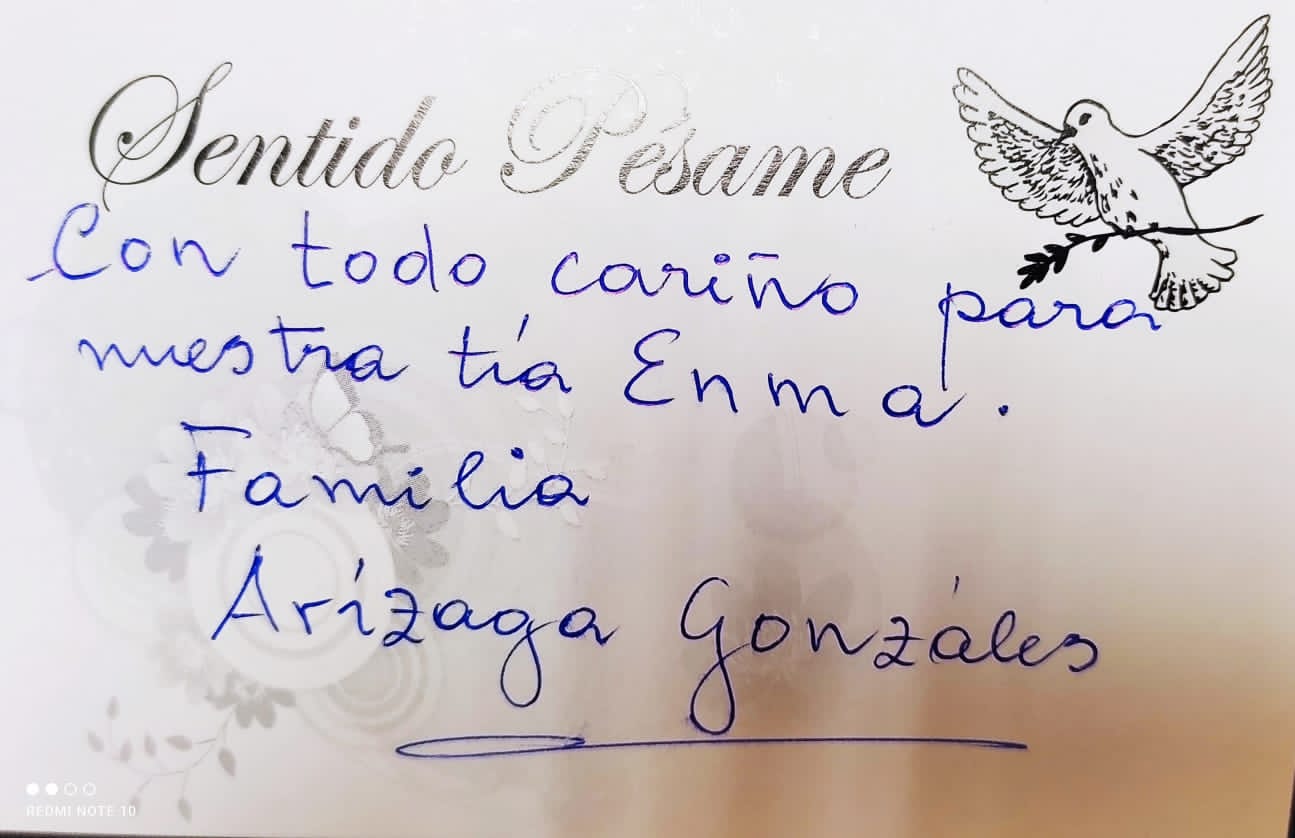 Sentido Pésame
Con todo cariño para
nuestra tía Enma.
Familia
Arízaga Gonzáles
REDMI NOTE 10